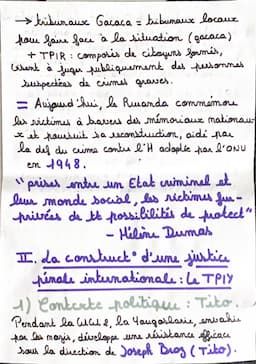 → tribunaux Gacaca = tribunaux locaux
pour faire face à la situation (gacaca)
+ TPIR : composés de citoyens formés,
visent à juger publiquement des personnes
suspectées de crimes graves.
= Aujourd'hui, le Rwanda commémore
les victimes à travers des mémoriaux nationau-
x et poursuit sa reconstruction, aidé par
la def du crime contre l'H adoptée par l'ONU
en 1948.
"prises entre un Etat criminel et
leur monde social, les victimes fu-
privées de tt possibilités de protect°"
- Hélène Dumas
II. La construct° d'une justice
pénale internationale : Le TPIY
1) Contexte politique : Tito.
Pendant la WW2, la Yougoslavie, envahie
par les nazis, développe une résistance efficace
sous la direction de Joseph Broz (Tito).